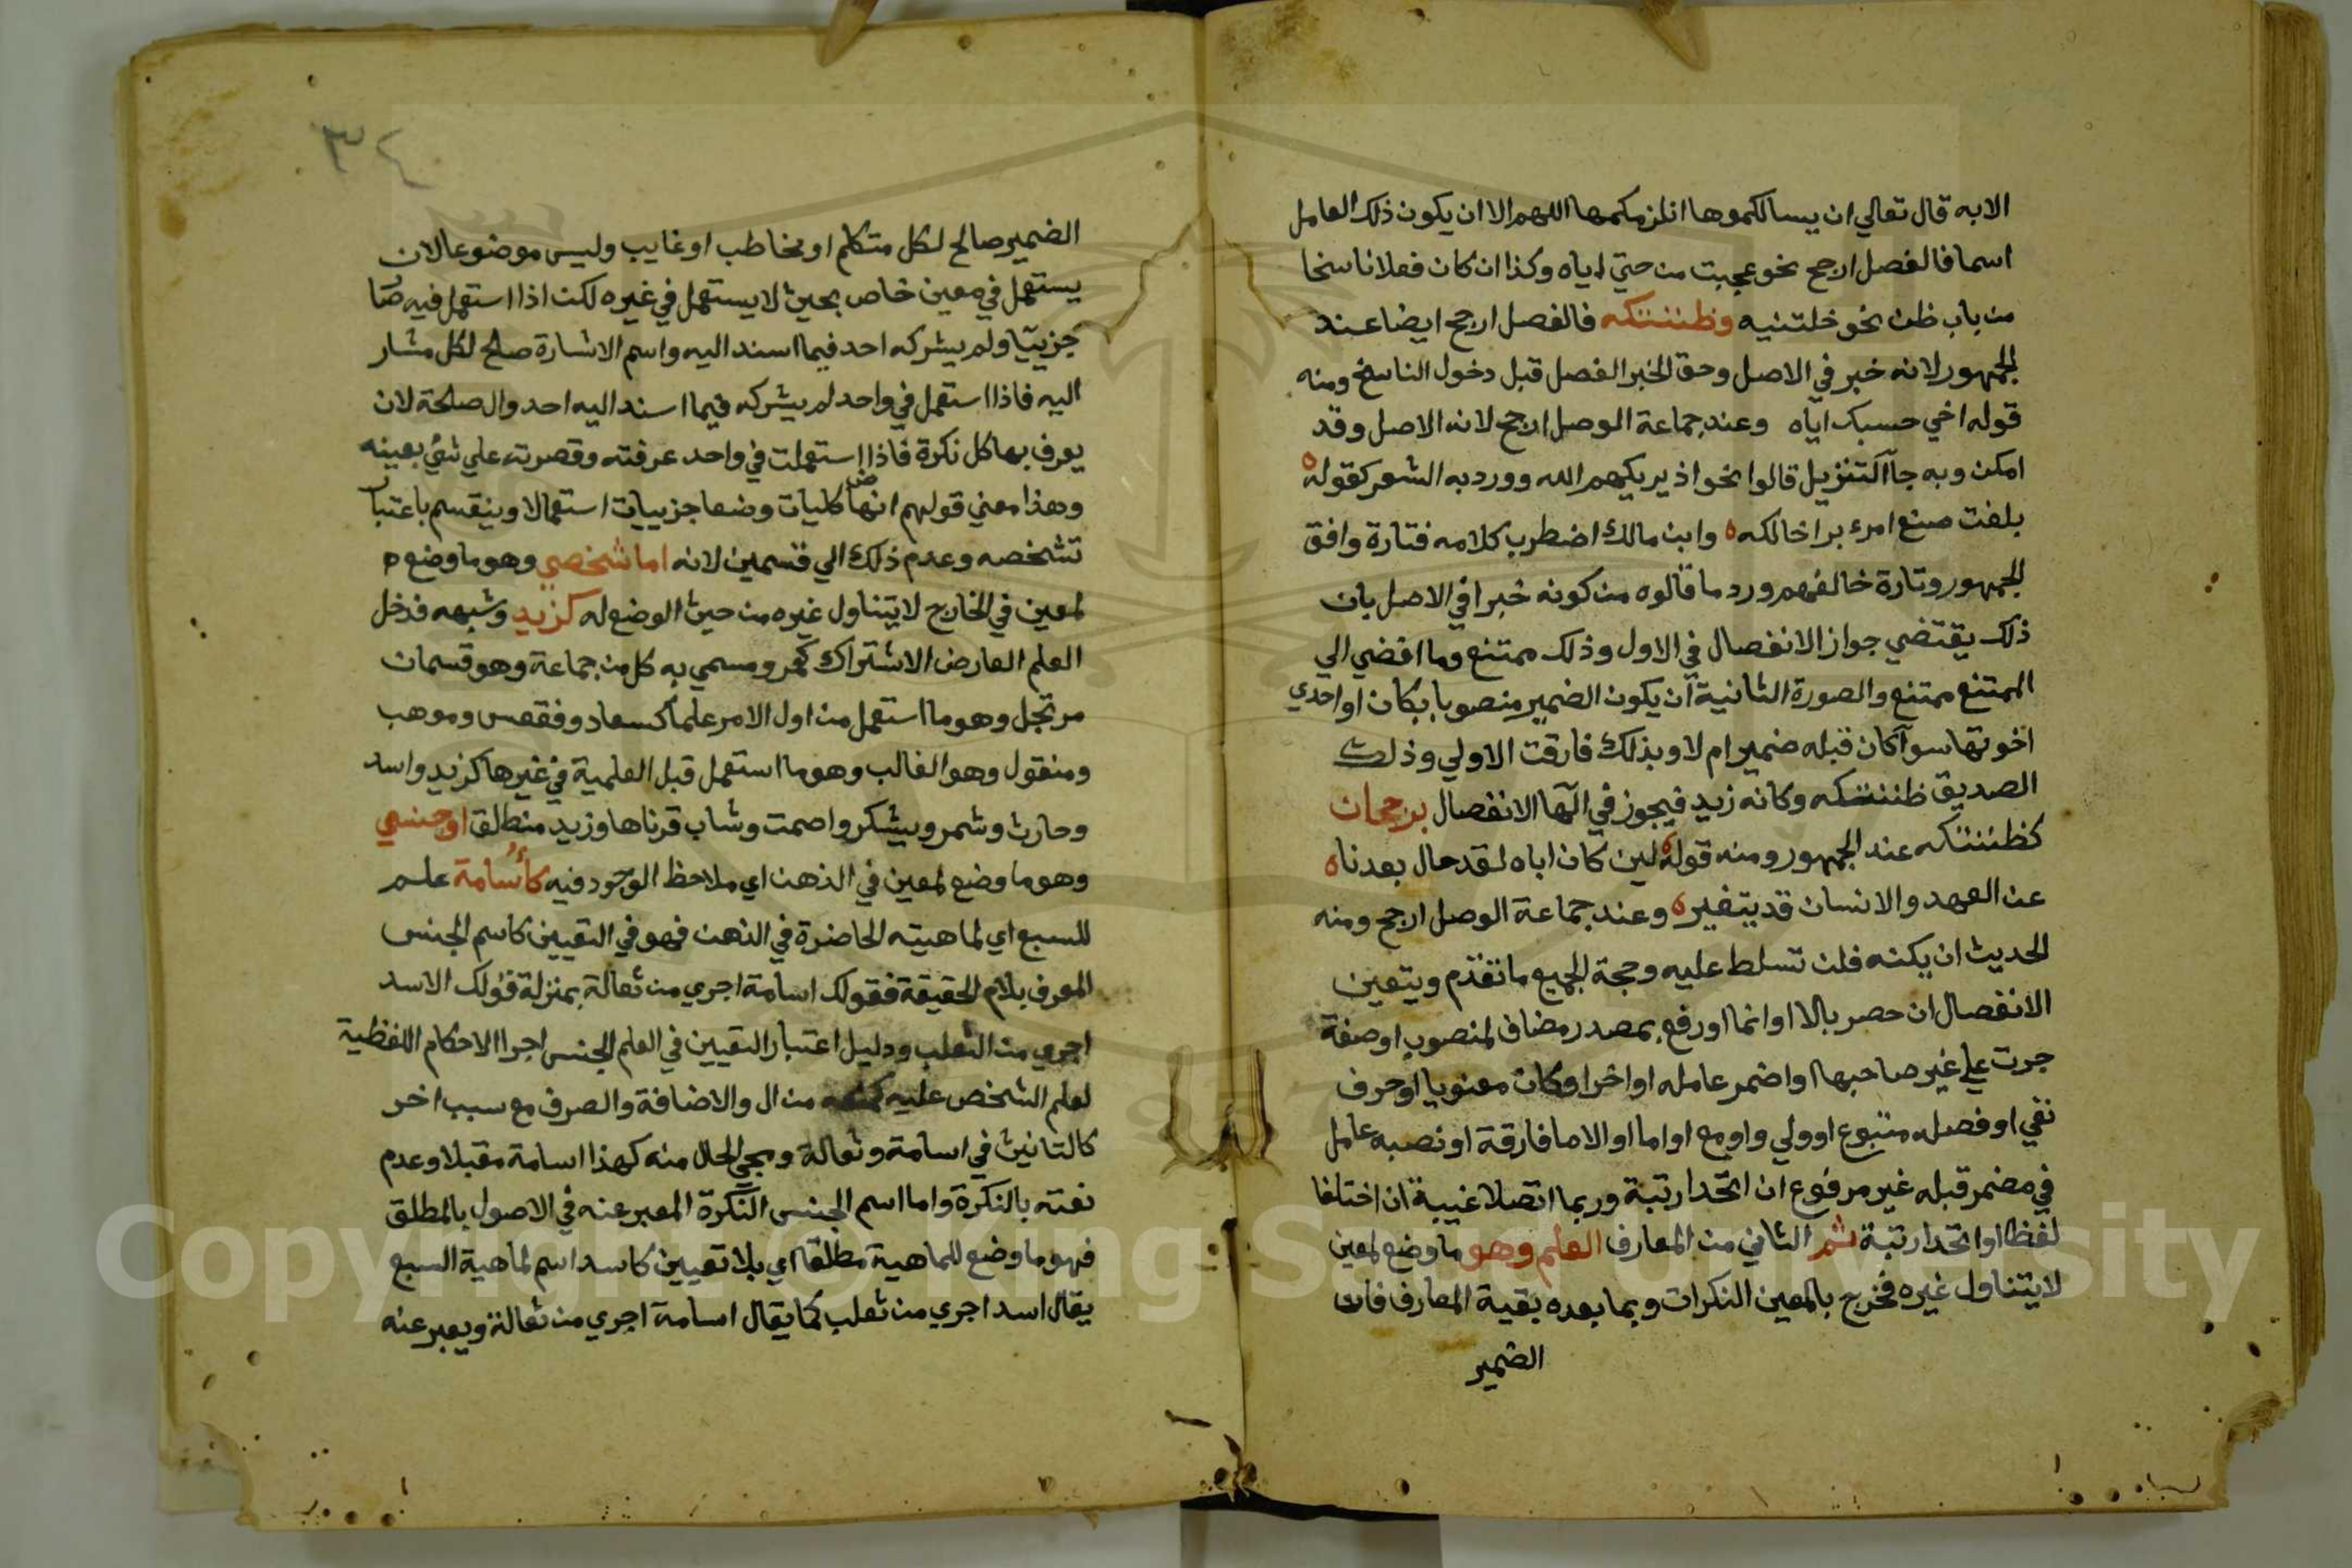 الابه قال تعالي ان يسالكموها انلزمكموها اللهم الا ان يكون ذلك العامل
اسما فالفصل ارجح نحو عجبت من حبي اياه وكذا ان كان فعلا ناسخا
من باب ظن نحو خلتنيه وظننتكه فالفصل ارجح ايضا عند
الجمهور لانه خبر في الاصل وحق الخبر الفصل قبل دخول الناسخ ومنه
قوله اخي حسبتك اياه وعند جماعة الوصل ارجح لانه الاصل وقد
امكن وبه جا التنزيل قالوا نحو اذ يريكهم الله وورد به الشعر كقوله
بلغت صنع امرء بر اخالكه وابن مالك اضطرب كلامه فتارة وافق
الجمهور وتارة خالفهم ورد ما قالوه من كونه خبرا في الاصل بان
ذلك يقتضي جواز الانفصال في الاول وذلك ممتنع وما افضي الي
الممتنع ممتنع والصورة الثانية ان يكون الضمير منصوبا بكان او احدي
اخوتها سوآ كان قبله ضمير ام لا وبذلك فارقت الاولي وذلك
الصديق ظننتكه وكانه زيد فيجوز في الها الانفصال برجحان
كظننتكه عند الجمهور ومنه قوله لين كان اياه لقد حال بعدنا
عن العهد والانسان قد يتغير وعند جماعة الوصل ارجح ومنه
الحديث ان يكنه فلن تسلط عليه وحجة الجميع ما تقدم ويتعين
الانفصال ان حصر بالا او انما او رفع بمصدر مضاف لمنصوب او صفة
جرت علي غير صاحبها او اضمر عامله او اخر او كان معنويا او حرف
نفي او فصله متبوع او ولي واو مع او اما او الاما فارقة او نصبه عامل
في مضمر قبله غير مرفوع ان اتحدا رتبة وربما اتصلا غيبة ان اختلفا
لفظا او اتحدا رتبة ثم الثاني من المعارف العلم وهو ما وضع لمعين
لا يتناول غيره فخرج بالمعين النكرات وبما بعده بقية المعارف فان
الضمير
٣٤
الضمير صالح لكل متكلم او مخاطب او غايب وليس موضوعا لان
يستعمل في معين خاص بحيث لا يستعمل في غيره لكن اذا استعمل فيه صا
جزييا ولم يشركه احد فيما اسند اليه واسم الاشارة صالح لكل مشار
اليه فاذا استعمل في واحد لم يشركه فيما اسند اليه احد وال صالحة لان
يعرف بها كل نكرة فاذا استعملت في واحد عرفته وقصرته علي شئ بعينه
وهذا معني قولهم انها كليات وضعا جزييات استعمالا وينقسم باعتبار
تشخصه وعدم ذلك الي قسمين لانه اما شخصي وهو ما وضع
لمعين في الخارج لا يتناول غيره من حيث الوضع له كزيد وشبهه فدخل
العلم العارض الاشتراك كعمرو مسمي به كل من جماعة وهو قسمان
مرتجل وهو ما استعمل من اول الامر علما كسعاد وفقعس وموهب
ومنقول وهو الغالب وهو ما استعمل قبل العلمية في غيرها كزيد واسد
وحارث وشمر ويشكر واصمت وشاب قرناها وزيد منطلق او جنسي
وهو ما وضع لمعين في الذهن اي ملاحظ الوجود فيه كأسامة علم
للسبع اي لماهيته الحاضرة في الذهن فهو في التعيين كاسم الجنس
المعرف بلام الحقيقة فقولك اسامة اجري من ثعالة بمنزلة قولك الاسد
اجري من الثعلب ودليل اعتبار التعيين في العلم الجنس اجرا الاحكام اللفظية
لعلم الشخص عليه كمنعه من ال والاضافة والصرف مع سبب اخر
كالتانيث في اسامة وثعالة ومجي الحال منه كهذا اسامة مقبلا وعدم
نعته بالنكرة واما اسم الجنس النكرة المعبر عنه في الاصول بالمطلق
فهو ما وضع للماهية مطلقا اي بلا تعيين كاسد اسم لماهية السبع
يقال اسد اجري من ثعلب كما يقال اسامة اجري من ثعالة ويعبر عنه
Copyright © King Saud University